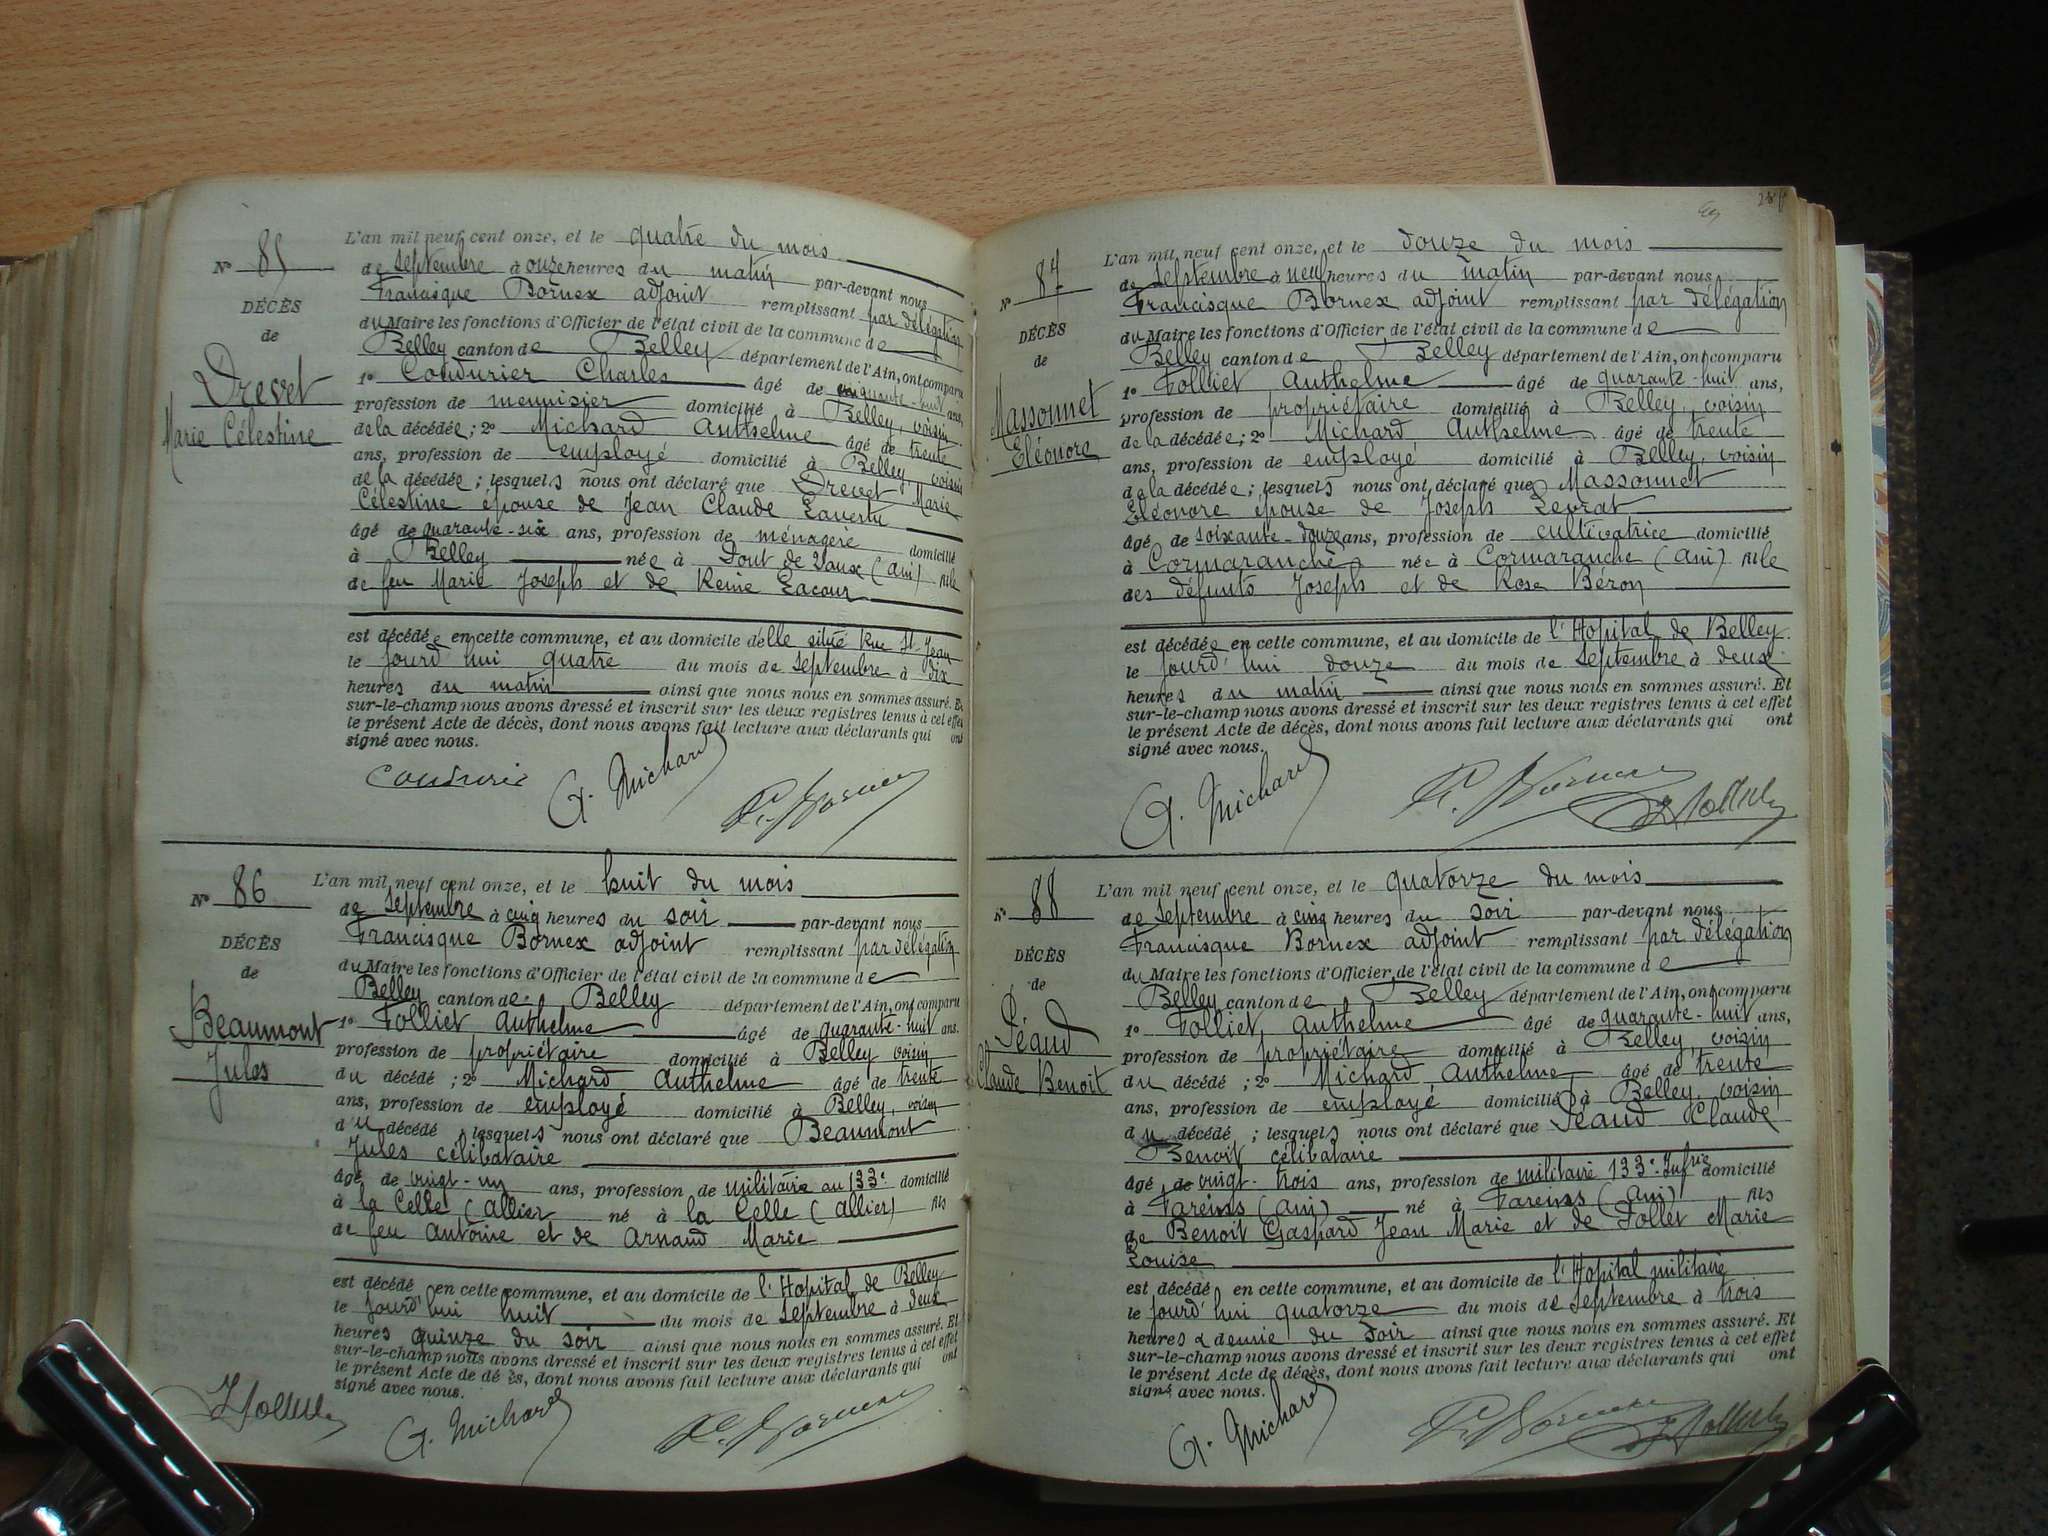 N° 85
DÉCÈS
de
Drevet
Marie Célestine
L'an mil neuf cent onze, et le quatre du mois
de septembre à onze heures du matin par-devant nous
Francisque Bornex adjoint remplissant par délégation
du Maire les fonctions d'Officier de l'état civil de la commune de
Belley canton de Belley département de l'Ain, ont comparu
1° Coudurier Charles âgé de cinquante-huit ans,
profession de menuisier domicilié à Belley, voisin
de la décédée ; 2° Michard Anthelme âgé de trente
ans, profession de employé domicilié à Belley, voisin
de la décédée ; lesquels nous ont déclaré que Drevet Marie
Célestine épouse de Jean Claude Lavertu
âgé de quarante-six ans, profession de ménagère domicilié
à Belley née à Pont de Vaux (Ain) fille
de feu Marie Joseph et de Reine Lacour
est décédée en cette commune, et au domicile d'elle situé Rue St-Jean
le jourd'hui quatre du mois de septembre à dix
heures du matin ainsi que nous nous en sommes assuré. Et
sur-le-champ nous avons dressé et inscrit sur les deux registres tenus à cet effet
le présent Acte de décès, dont nous avons fait lecture aux déclarants qui ont
signé avec nous.
Coudurier A. Michard F. Bornex
N° 86
DÉCÈS
de
Beaumont
Jules
L'an mil neuf cent onze, et le huit du mois
de septembre à cinq heures du soir par-devant nous
Francisque Bornex adjoint remplissant par délégation
du Maire les fonctions d'Officier de l'état civil de la commune de
Belley canton de Belley département de l'Ain, ont comparu
1° Folliet Anthelme âgé de quarante-huit ans.
profession de propriétaire domicilié à Belley voisin
du décédé ; 2° Michard Anthelme âgé de trente
ans, profession de employé domicilié à Belley, voisin
du décédé lesquels nous ont déclaré que Beaumont
Jules célibataire
âgé de vingt-un ans, profession de militaire au 133e domicilié
à la Celle (Allier né à la Celle (Allier) fils
de feu Antoine et de Arnaud Marie
est décédé en cette commune, et au domicile de l'Hopital de Belley
le jourd'hui huit du mois de septembre à deux
heures quinze du soir ainsi que nous nous en sommes assuré. Et
sur-le-champ nous avons dressé et inscrit sur les deux registres tenus à cet effet
le présent Acte de décès, dont nous avons fait lecture aux déclarants qui ont
signé avec nous.
Folliet A. Michard F. Bornex
N° 87
DÉCÈS
de
Massonnet
Eléonore
L'an mil neuf cent onze, et le douze du mois
de septembre à neuf heures du matin par-devant nous
Francisque Bornex adjoint remplissant par délégation
du Maire les fonctions d'Officier de l'état civil de la commune de
Belley canton de Belley département de l'Ain, ont comparu
1° Folliet Anthelme âgé de quarante-huit ans,
profession de propriétaire domicilié à Belley, voisin
de la décédée ; 2° Michard, Anthelme âgé de trente
ans, profession de employé domicilié à Belley, voisin
de la décédée ; lesquels nous ont déclaré que Massonnet
Eléonore épouse de Joseph Levrat
âgé de soixante-douze ans, profession de cultivatrice domicilié
à Cormaranche née à Cormaranche (Ain) fille
des défunts Joseph et de Rose Béron
est décédée en cette commune, et au domicile de l'Hopital de Belley
le jourd'hui douze du mois de septembre à deux
heures du matin ainsi que nous nous en sommes assuré. Et
sur-le-champ nous avons dressé et inscrit sur les deux registres tenus à cet effet
le présent Acte de décès, dont nous avons fait lecture aux déclarants qui ont
signé avec nous.
A. Michard F. Bornex Folliet
N° 88
DÉCÈS
de
Péaud
Claude Benoit
L'an mil neuf cent onze, et le quatorze du mois
de septembre à cinq heures du soir par-devant nous
Francisque Bornex adjoint remplissant par délégation
du Maire les fonctions d'Officier de l'état civil de la commune de
Belley canton de Belley département de l'Ain, ont comparu
1° Folliet, Anthelme âgé de quarante-huit ans,
profession de propriétaire domicilié à Belley, voisin
du décédé ; 2° Michard, Anthelme âgé de trente
ans, profession de employé domicilié à Belley, voisin
du décédé ; lesquels nous ont déclaré que Péaud Claude
Benoit célibataire
âgé de vingt-trois ans, profession de militaire 133e Infrie domicilié
à Fareins (Ain) né à Fareins (Ain) fils
de Benoit Gaspard Jean Marie et de Pollet Marie
Louise
est décédé en cette commune, et au domicile de l'Hopital militaire
le jourd'hui quatorze du mois de septembre à trois
heures & demie du soir ainsi que nous nous en sommes assuré. Et
sur-le-champ nous avons dressé et inscrit sur les deux registres tenus à cet effet
le présent Acte de décès, dont nous avons fait lecture aux déclarants qui ont
signé avec nous.
A. Michard F. Bornex Folliet